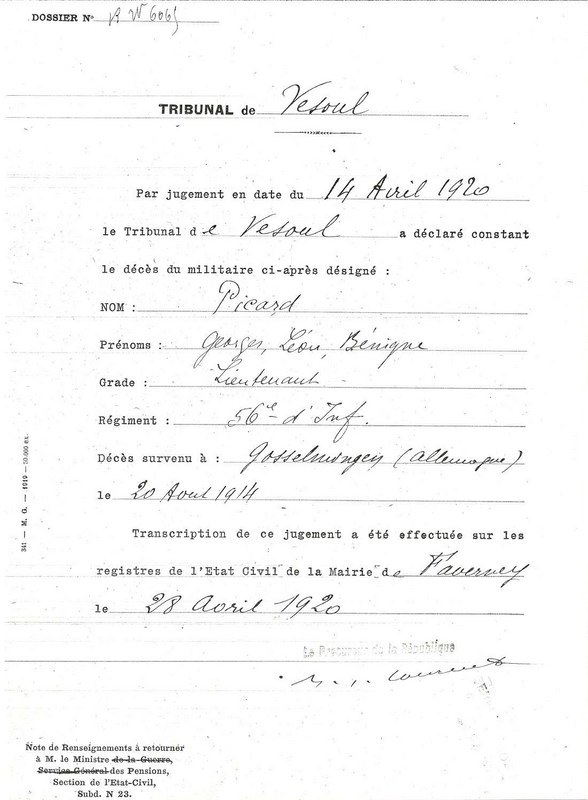 DOSSIER N°
TRIBUNAL de Vesoul
Par jugement en date du 14 Avril 1920
le Tribunal de Vesoul a déclaré constant
le décès du militaire ci-après désigné :
NOM : Picard
Prénoms : Georges, Léon, Bénigne
Grade : Lieutenant
Régiment : 56e d'Inf.
Décès survenu à : Gosselmingen (Allemagne)
le 20 Aout 1914
Transcription de ce jugement a été effectuée sur les
registres de l'Etat Civil de la Mairie de Faverney
le 28 Avril 1920
Le Procureur de la République
341 — M. G. — 1919 — 50.000 ex.
Note de Renseignements à retourner
à M. le Ministre de la Guerre,
Service Général des Pensions,
Section de l'Etat-Civil,
Subd. N 23.